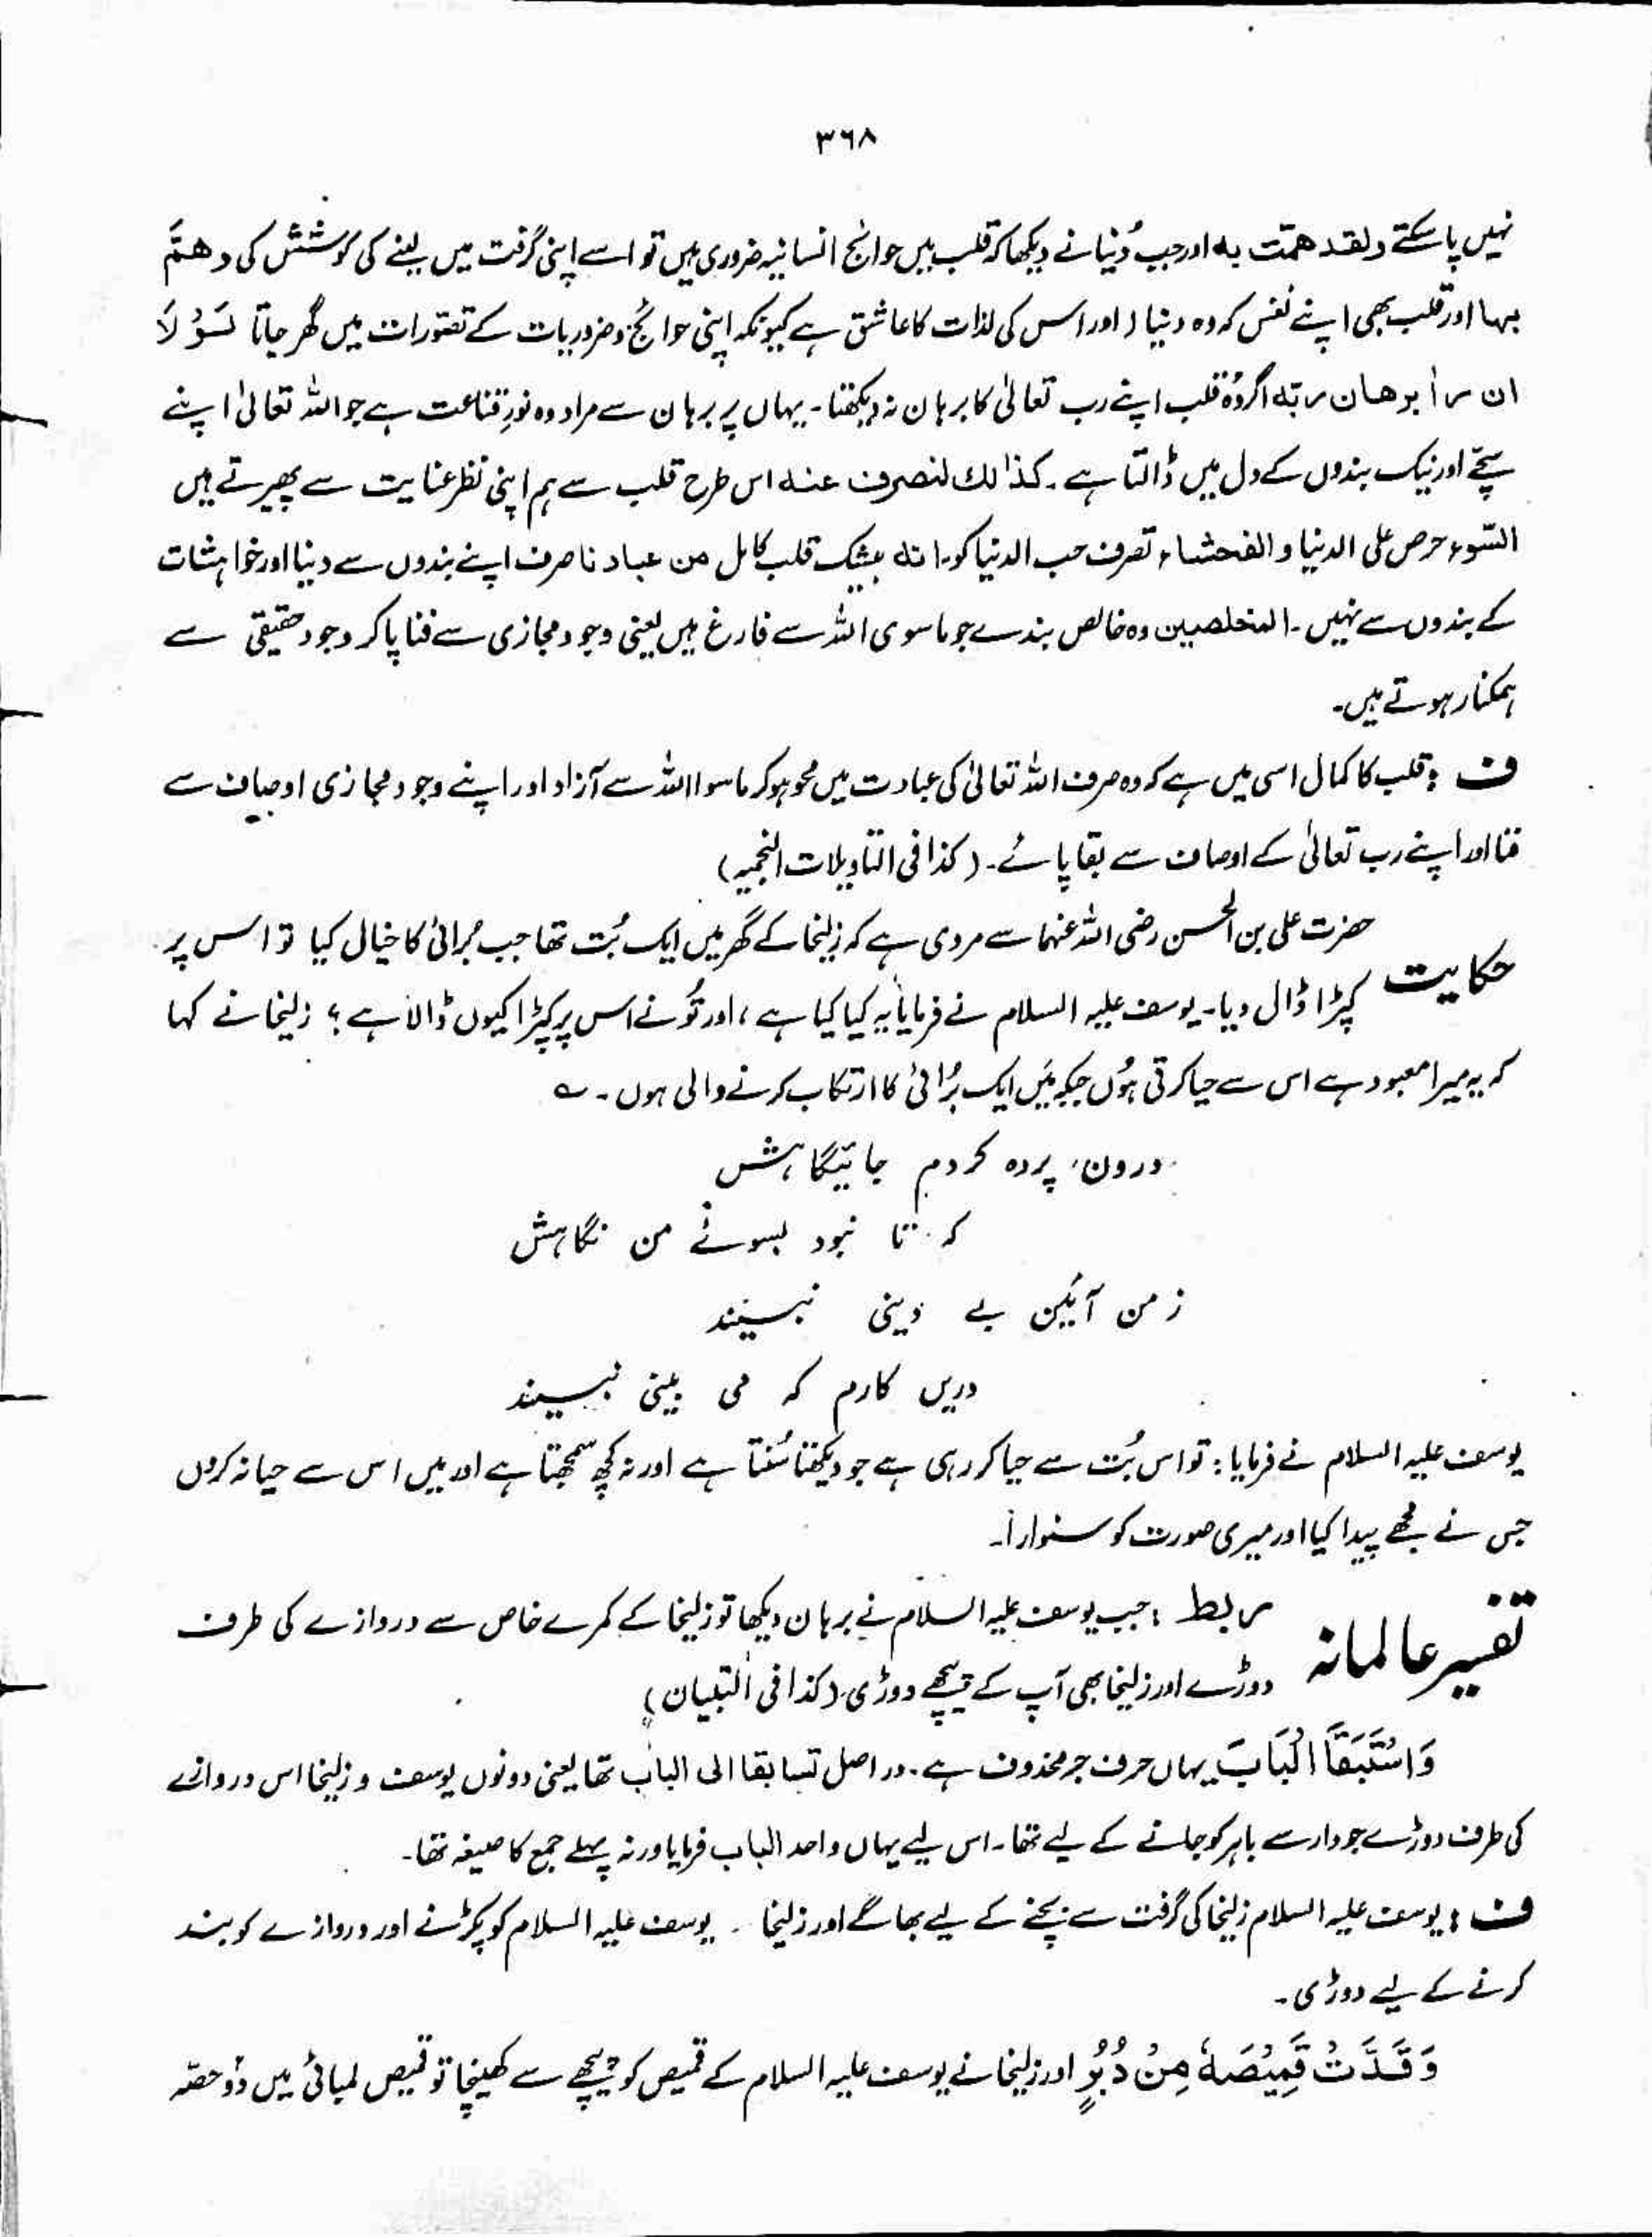 ٣٦٨
نہیں پا سکتے ولقد همّت به اور جب دُنیا نے دیکھا کہ قلب میں حوائج انسانیہ ضروری ہیں تو اسے اپنی گرفت میں لینے کی کوشش کی وهمَّ
بہا اور قلب بھی اپنے نفس کہ وہ دنیا اور اس کی لذات کا عاشق ہے کیونکہ اپنی حوائج وضروریات کے تصورات میں گھر جاتا لَوْ لَا
ان رأ برهان ربّه اگر وُہ قلب اپنے رب تعالیٰ کا برہان نہ دیکھتا۔ یہاں پر برہان سے مراد وہ نورِ قناعت ہے جو اللہ تعالیٰ اپنے
سچّے اور نیک بندوں کے دل میں ڈالتا ہے۔ کذالك لنصرف عنه اس طرح قلب سے ہم اپنی نظر عنایت سے پھیرتے ہیں
السّوء حرص علی الدنیا و الفحشاء تصرف حب الدنیا کو۔ انه بیشک قلب کامل من عبادنا صرف اپنے بندوں سے دنیا اور خواہشات
کے بندوں سے نہیں۔ المخلصین وہ خالص بندے جو ماسوی اللہ سے فارغ ہیں یعنی وجود مجازی سے فنا پا کر وجود حقیقی سے
ہمکنار ہوتے ہیں۔
ف : قلب کا کمال اسی میں ہے کہ وہ صرف اللہ تعالیٰ کی عبادت میں محو ہو کر ماسوا اللہ سے آزاد اور اپنے وجود مجازی اوصاف سے
فنا اور اپنے رب تعالیٰ کے اوصاف سے بقا پائے۔ (کذا فی التاویلات النجمیہ)
حکایت حضرت علی بن الحسن رضی اللہ عنہما سے مروی ہے کہ زلیخا کے گھر میں ایک بُت تھا جب بُرائی کا خیال کیا تو اس پر
کپڑا ڈال دیا۔ یوسف علیہ السلام نے فرمایا یہ کیا کیا ہے، اور تُو نے اس پر کپڑا کیوں ڈالا ہے؟ زلیخا نے کہا
کہ یہ میرا معبود ہے اس سے حیا کرتی ہُوں جبکہ مَیں ایک بُرائی کا ارتکاب کرنے والی ہوں۔ ؎
درون پردہ کردم جائیگاہش
کہ تا نبود بسوئے من نگاہش
ز من آئین بے دینی نبیند
دریں کارم کہ می بینی نبیند
یوسف علیہ السلام نے فرمایا: تو اس بُت سے حیا کر رہی ہے جو دیکھتا سُنتا ہے اور نہ کچھ سمجھتا ہے اور میں اس سے حیا نہ کروں
جس نے مجھے پیدا کیا اور میری صورت کو سنوارا۔
تفسیر عالمانہ ربط : جب یوسف علیہ السلام نے برہان دیکھا تو زلیخا کے کمرے خاص سے دروازے کی طرف
دوڑے اور زلیخا بھی آپ کے پیچھے دوڑی (کذا فی التبیان)
وَاسْتَبَقَا الْبَابَ یہاں حرف جر محذوف ہے۔ در اصل تسابقا الی الباب تھا یعنی دونوں یوسف و زلیخا اس دروازے
کی طرف دوڑے جو دار سے باہر کو جانے کے لیے تھا۔ اس لیے یہاں واحد الباب فرمایا ورنہ پہلے جمع کا صیغہ تھا۔
ف : یوسف علیہ السلام زلیخا کی گرفت سے بچنے کے لیے بھاگے اور زلیخا ۔ یوسف علیہ السلام کو پکڑنے اور دروازے کو بند
کرنے کے لیے دوڑی۔
وَقَدَّتْ قَمِيْصَهٗ مِنْ دُبُرٍ اور زلیخا نے یوسف علیہ السلام کے قمیص کو پیچھے سے کھینچا تو قمیص لمبائی میں دُو حصّہ